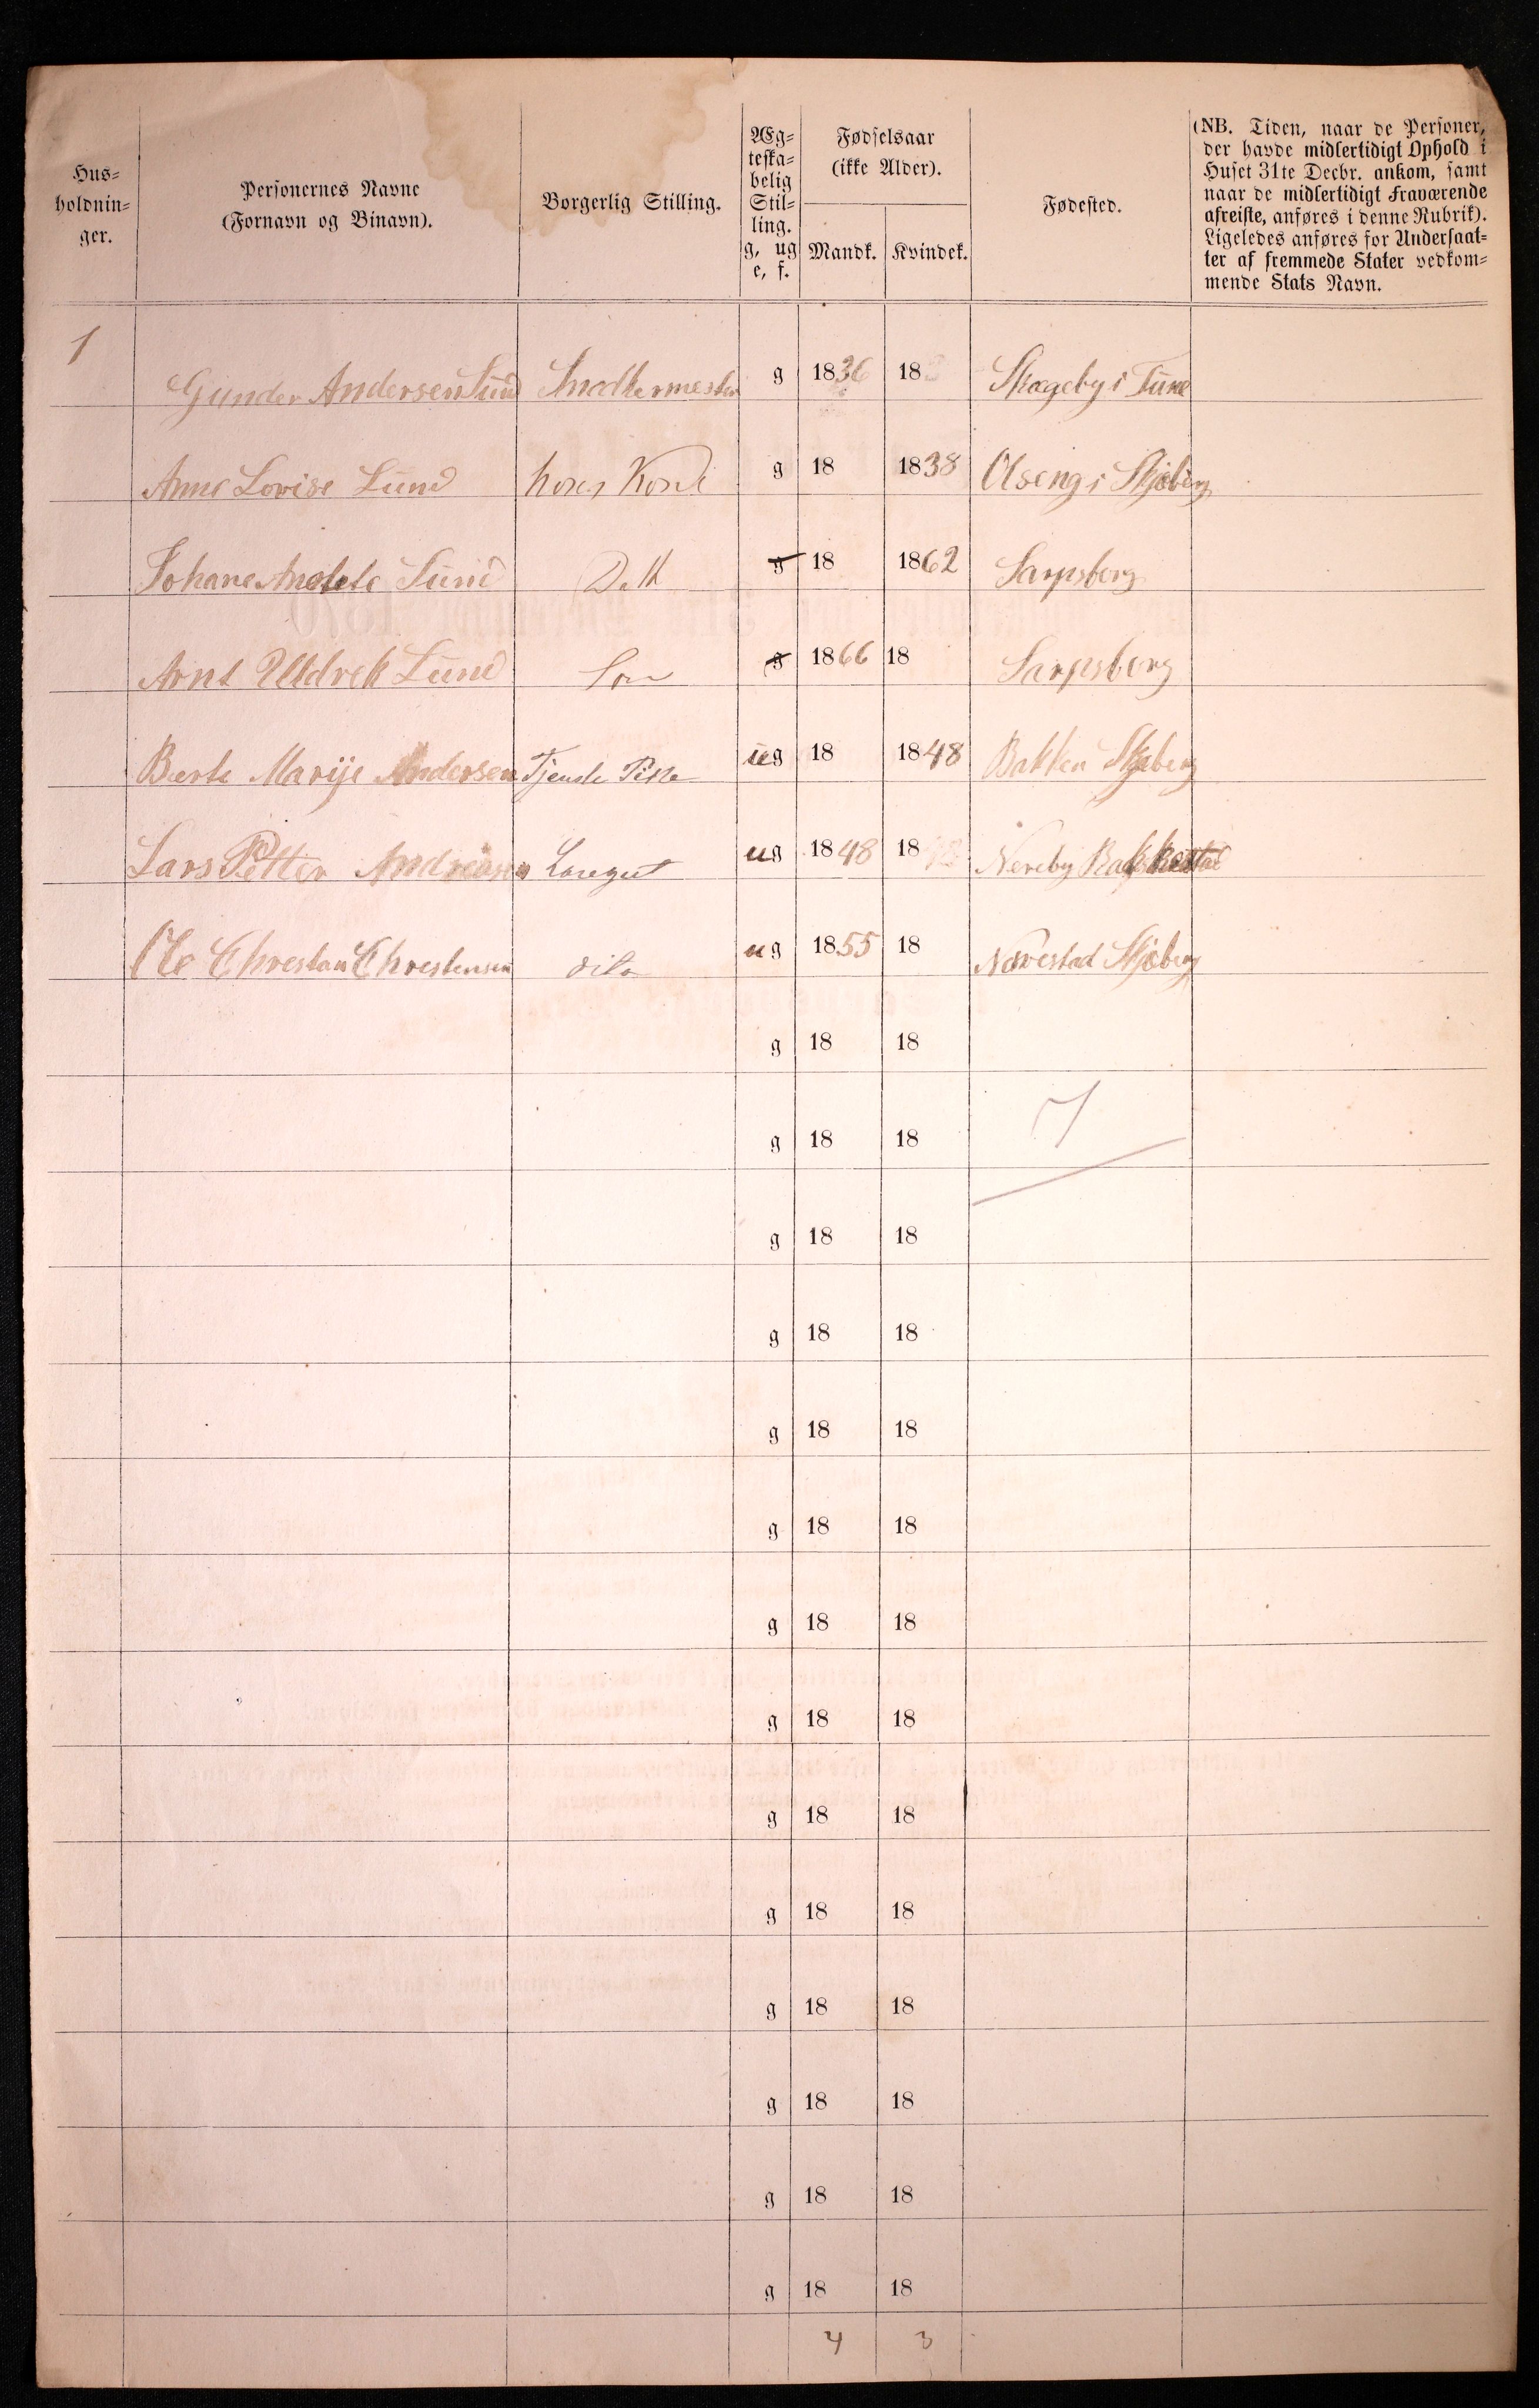 Hus-
holdnin-
ger.
Personernes Navne
(Fornavn og Binavn).
Borgerlig Stilling.
Æg-
teska-
belig
Stil-
ling.
g, ug
e, f.
Fødselsaar
(ikke Alder).
Mandk. Kvindek.
Fødested.
(NB. Tiden, naar de Personer,
der havde midlertidigt Ophold i
Huset 31te Decbr. ankom, samt
naar de midlertidigt Fraværende
afreiste, anføres i denne Rubrik).
Ligeledes anføres for Undersaat-
ter af fremmede Stater vedkom-
mende Stats Navn.
1
Gunder Andersen Lund Snedkermester g 1836 18 i Tune
Anne Lovise Lund hans Kone g 18 1838 Olseng i Skjeberg
Johane Lund Datt g 18 1862 Sarpsborg
Arnt Uldrek Lund Søn g 1866 18 Sarpsborg
Berte Marije Andersen Tjeneste Pike ug 18 1848 Bakken Skjeberg
Lars Petter Andreasen Laregut ug 1848 18 Nereby
Ole Chrestan Chrestensen dito ug 1855 18 Navestad Skjeberg
g 18 18
g 18 18
7
g 18 18
g 18 18
g 18 18
g 18 18
g 18 18
g 18 18
g 18 18
g 18 18
g 18 18
g 18 18
g 18 18
g 18 18
4 3